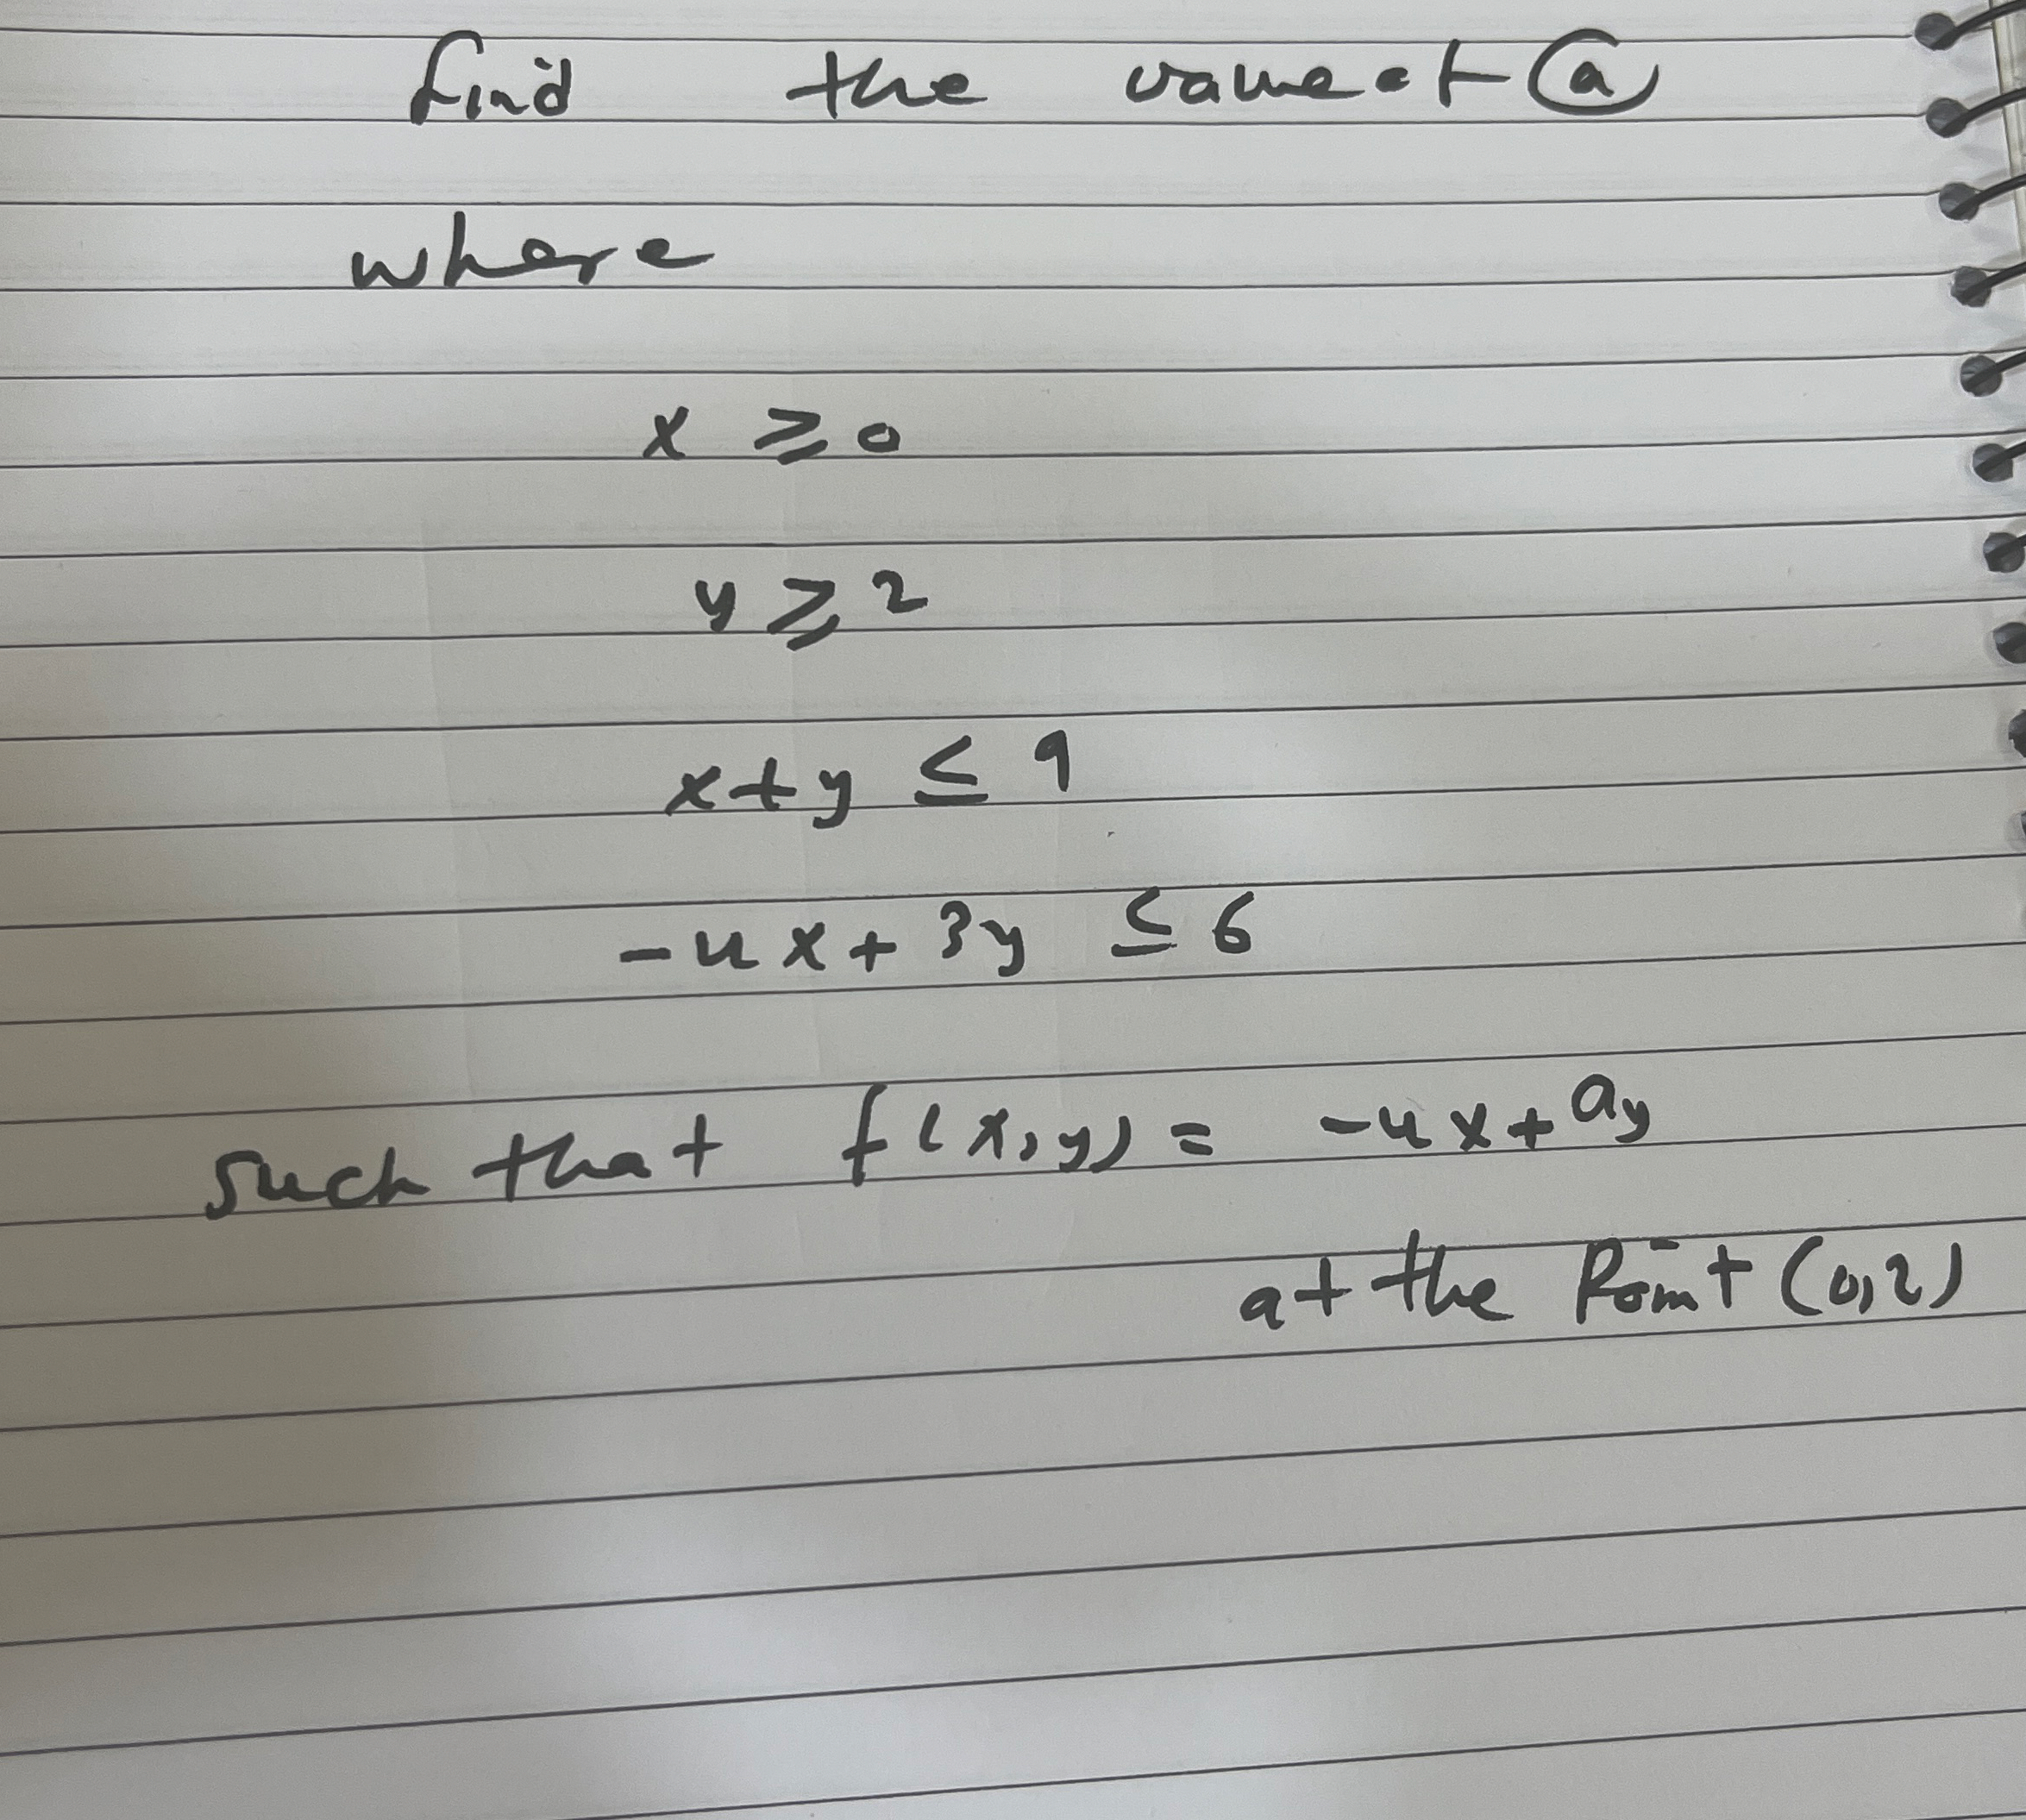 find the value of ⓐ
where
x ≥ 0
y ≥ 2
x+y ≤ 9
-4x+3y ≤ 6
such that f(x,y) = -4x+ay
at the Point (0,2)